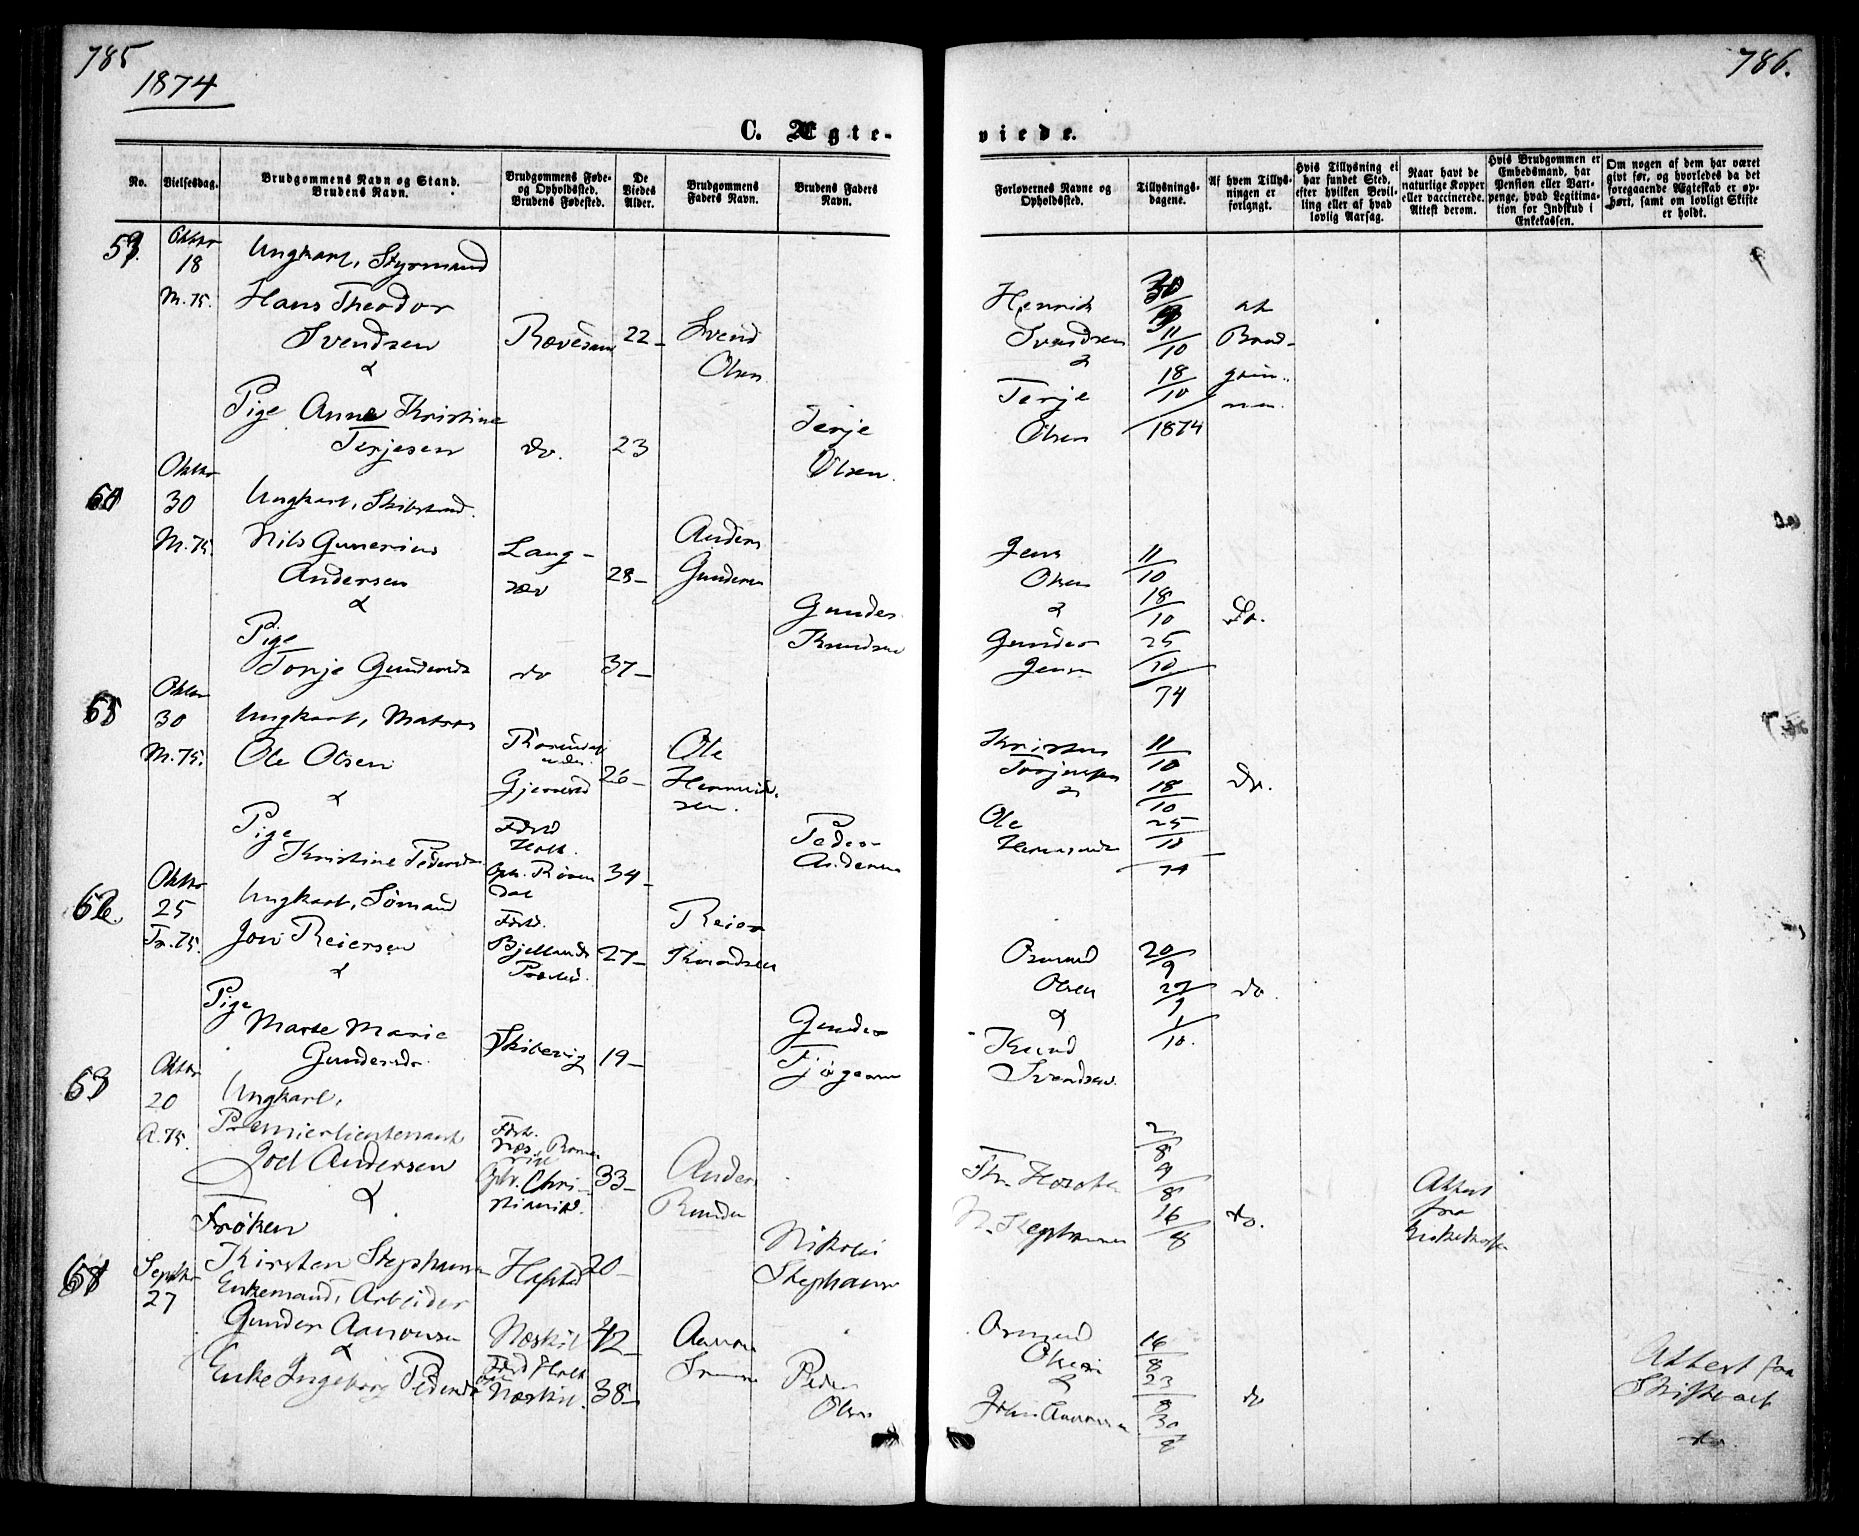 785
1874
C. Ægte-
No.
Vielsesdag.
Brudgommens Navn og Stand.
Brudens Navn.
Brudgommens Føde-
og Opholdssted.
Brudens Fødested.
De
Viedes
Alder.
Brudgommens
Faders Navn.
Brudens Faders
Navn.
59.
Oktbr
18
M. 75.
Ungkarl, Styrmand
Hans Theodor
Svendsen
&
22 -
Svend
Olsen
Pige Anne Kristine
Terjesen
do.
23
Terje
Olsen.
Oktbr
30
M. 75.
Ungkarl, Skibstmd.
Nils Gunerius
Andersen
&
Lang-
sæv
28 -
Anders
Gundersen
Pige
Torje Gundersdtr
do
37 -
Gunder
Knudsen
Oktbr
30
M. 75.
Ungkarl, Matros
Ole Olsen
&
Gjerrestad
26 -
Ole
Hermund-
sen.
Pige
Kristine Pedersdtr
Født
Holt
Oph. Rosen
dal
34 -
Peder
Andersen
62.
Oktbr
25
Tr. 75.
Ungkarl, Sømand
Jon Reiersen
&
Født
Bjellands
Præstd.
27 -
Reier
Knudsen
Pige
Marte Marie
Gundersdr.
Skibevig
19 -
Gunder
63
Oktbr
20
A. 75.
Ungkarl,
Premierlieutenant
Joel Andersen
&
Født.
Næs, Rome-
rike
Oph. Chri-
stiania.
33 -
Anders
Frøken
Kirsten Stephansen
20 -
Nikolai
Stephansen
Septbr
27
Enkemand, Arbeider
Gunder Aanonsen
&
Næskil
42 -
Aanon
Enke Ingeborg Pedersdtr
Født Holt
Næskil.
38 -
Peder
Olsen
786.
viede.
Forlovernes Navne og
Opholdssted.
Tillysnings-
dagene.
Af hvem Tillys-
ningen er
forlangt.
Hvis Tillysning ei
har fundet Sted,
efter hvilken Bevil-
ling eller af hvad
lovlig Aarsag.
Naar havt de
naturlige Kopper
eller vaccinerede.
Attest derom.
Hvis Brudgommen er
Embedsmand, har
Pension eller Vart-
penge, hvad Legitima-
tion for Indskud i
Enkekassen.
Om nogen af dem har været
givt før, og hvorledes da det
foregaaende Ægteskab er op-
hørt, samt om lovligt Skifte
er holdt.
Henrik
Svendsen
&
Terje
Olsen
11/10
18/10
1874
af
Brud-
gom-
men.
Jens
Olsen
&
Gunder
Jensen
11/10
18/10
25/10
74
Do.
Kristen
Torjussen
&
Ole
Hermundsen
11/10
18/10
25/10
74
Do.
Osmund
Olsen
&
Knud
Svendsen
20/9
27/9
1/10.
do.
N. Stephansen
2/8
9/8
16/8
do.
Attest
fra
Enkekassen
Osmund
Olsen
&
John Aanonsen
16/8
23/8
30/8
do
Attest fra
Skifteret
do.